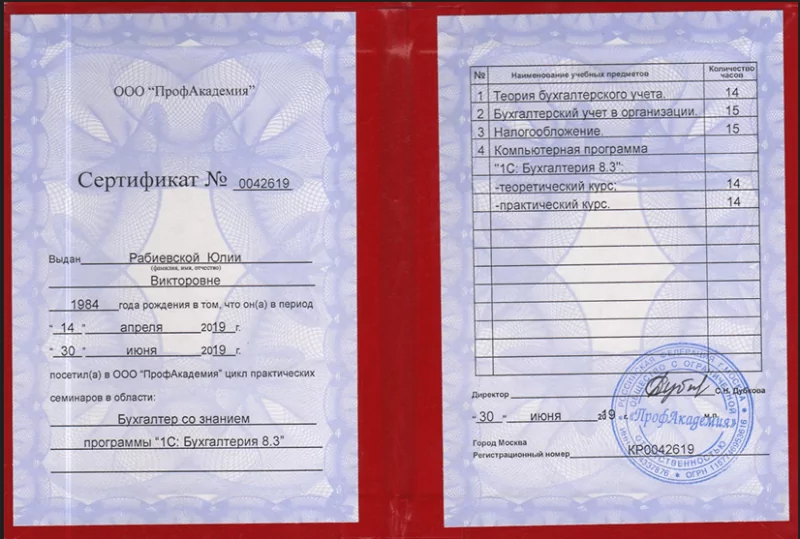 ООО “ПрофАкадемия”
Сертификат № 0042619
Выдан Рабиевской Юлии
(фамилия, имя, отчество)
Викторовне
1984 года рождения в том, что он(а) в период
“ 14 “ апреля 2019 г.
“ 30 “ июня 2019 г.
посетил(а) в ООО “ПрофАкадемия” цикл практических
семинаров в области:
Бухгалтер со знанием
программы “1С: Бухгалтерия 8.3”
№ Наименование учебных предметов Количество часов
1 Теория бухгалтерского учета. 14
2 Бухгалтерский учет в организации. 15
3 Налогообложение. 15
4 Компьютерная программа
"1С: Бухгалтерия 8.3":
-теоретический курс; 14
-практический курс. 14
Директор С.Н. Дубкова
“ 30 “ июня 2019 г. М.П.
Город Москва
Регистрационный номер КР0042619
РОССИЙСКАЯ ФЕДЕРАЦИЯ Г. МОСКВА
ОБЩЕСТВО С ОГРАНИЧЕННОЙ
ОТВЕТСТВЕННОСТЬЮ
«ПрофАкадемия»
ОГРН